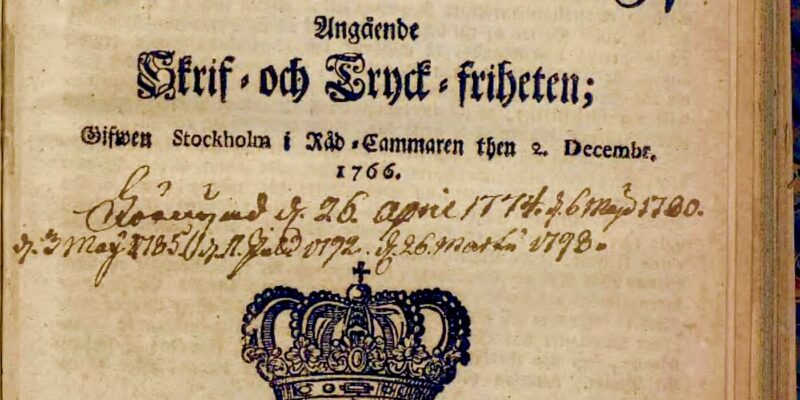 Angående
Skrif-och Tryck-friheten;
Gifwen Stockholm i Råd-Cammaren then 2. Decembr.
1766.
d. 26. april 1774. d. 6 Maji 1780.
d. 3 May 1785 d. 11. 1792. d. 26. Martii 1798.